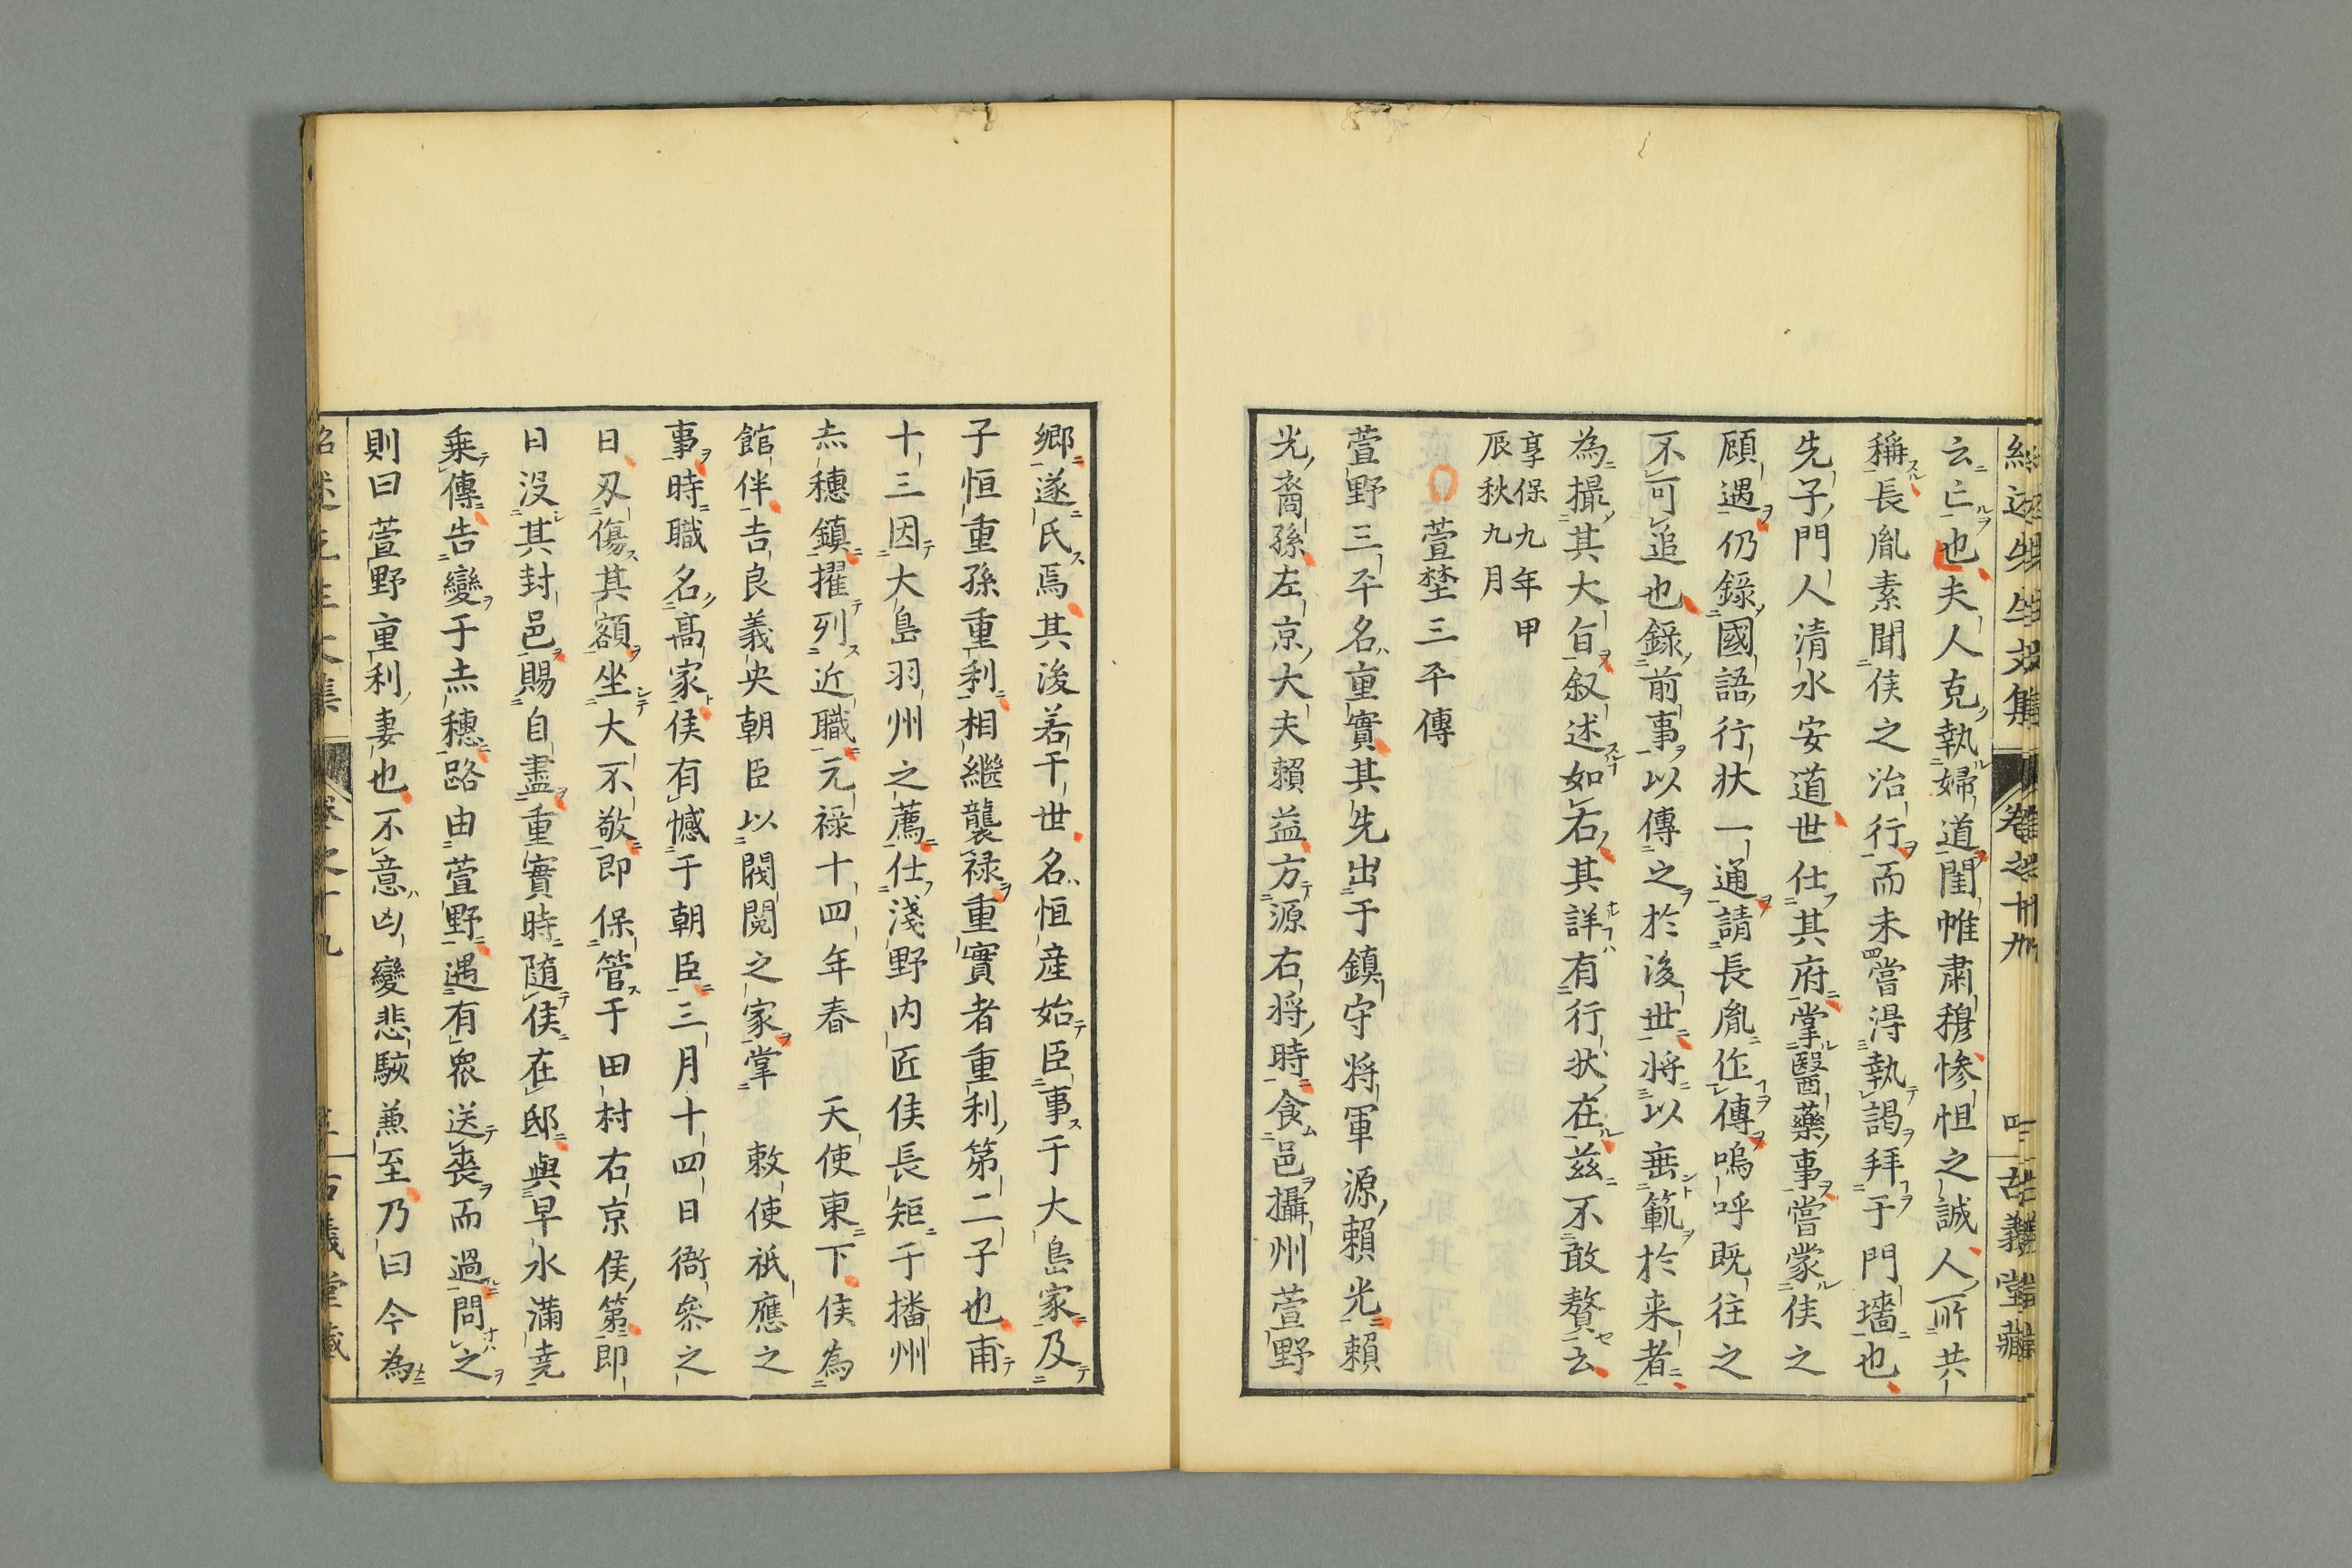 云亡也夫人克執婦道閨帷肅穆惨怛之誠人所共
稱長胤素聞侯之治行而未嘗得執謁拜于門墻也
先子門人清水安道世仕其府掌醫藥事嘗蒙侯之
顧遇仍錄國語行狀一通請長胤作傳嗚呼既往之
不可追也錄前事以傳之於後世將以垂範於来者
為撮其大旨叙述如右其詳有行狀在茲不敢贅云
享保九年甲
辰秋九月
萱埜三平傳
萱野三平名重實其先出于鎮守将軍源賴光賴
光裔孫左京大夫賴益方源右将時食邑攝州萱野
鄉遂氏焉其後若干世名恒産始臣事于大島家及
子恒重孫重利相繼襲禄重實者重利第二子也甫
十三因大島羽州之薦仕淺野内匠侯長矩于播州
赤穗鎮擢列近職元禄十四年春 天使東下侯為
館伴吉良義央朝臣以閥閲之家掌 敕使祇應之
事時職名高家侯有憾于朝臣三月十四日衙参之
日刃傷其額坐大不敬即保管于田村右京侯第即
日没其封邑賜自盡重實時随侯在邸與早水滿堯
乗傳告變于赤穗路由萱野遇有衆送喪而過問之
則曰萱野重利妻也不意凶變悲駭兼至乃曰今為
卷之十九
古義堂藏